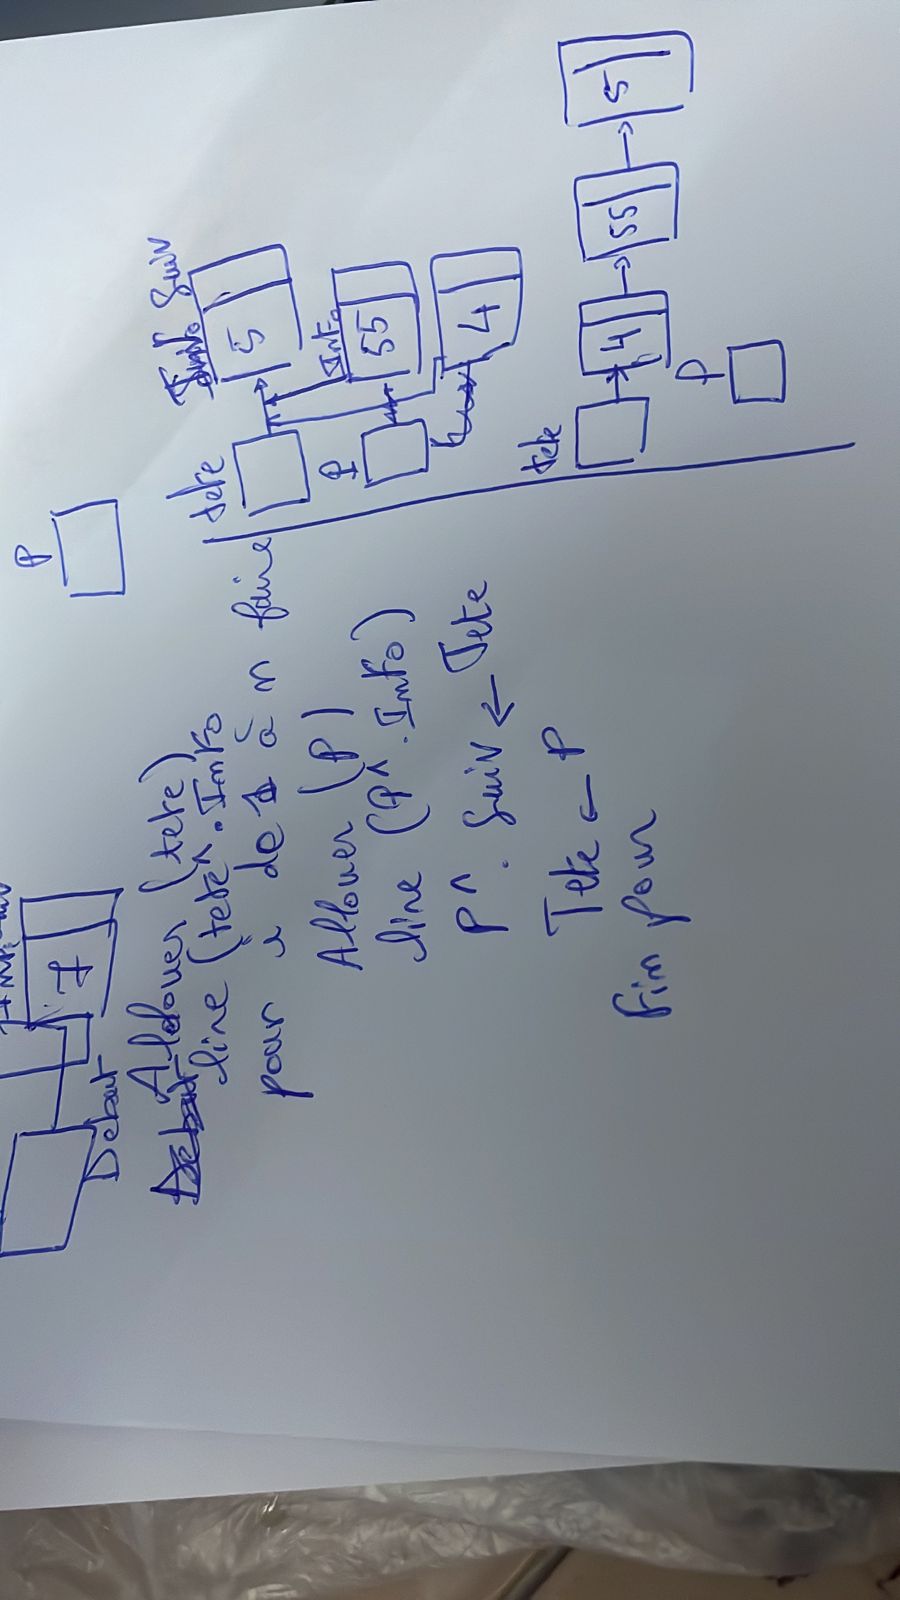 7
P
Debut
Allouer (tete)
lire (tete^.Info
pour i de 1 à n faire
Allouer (P)
lire (P^.Info)
P^. Suiv ← Tete
Tete ← P
Fin pour
tete
Info Suiv
5
P
Info
55
4
tete
4 → 55 → 5
P